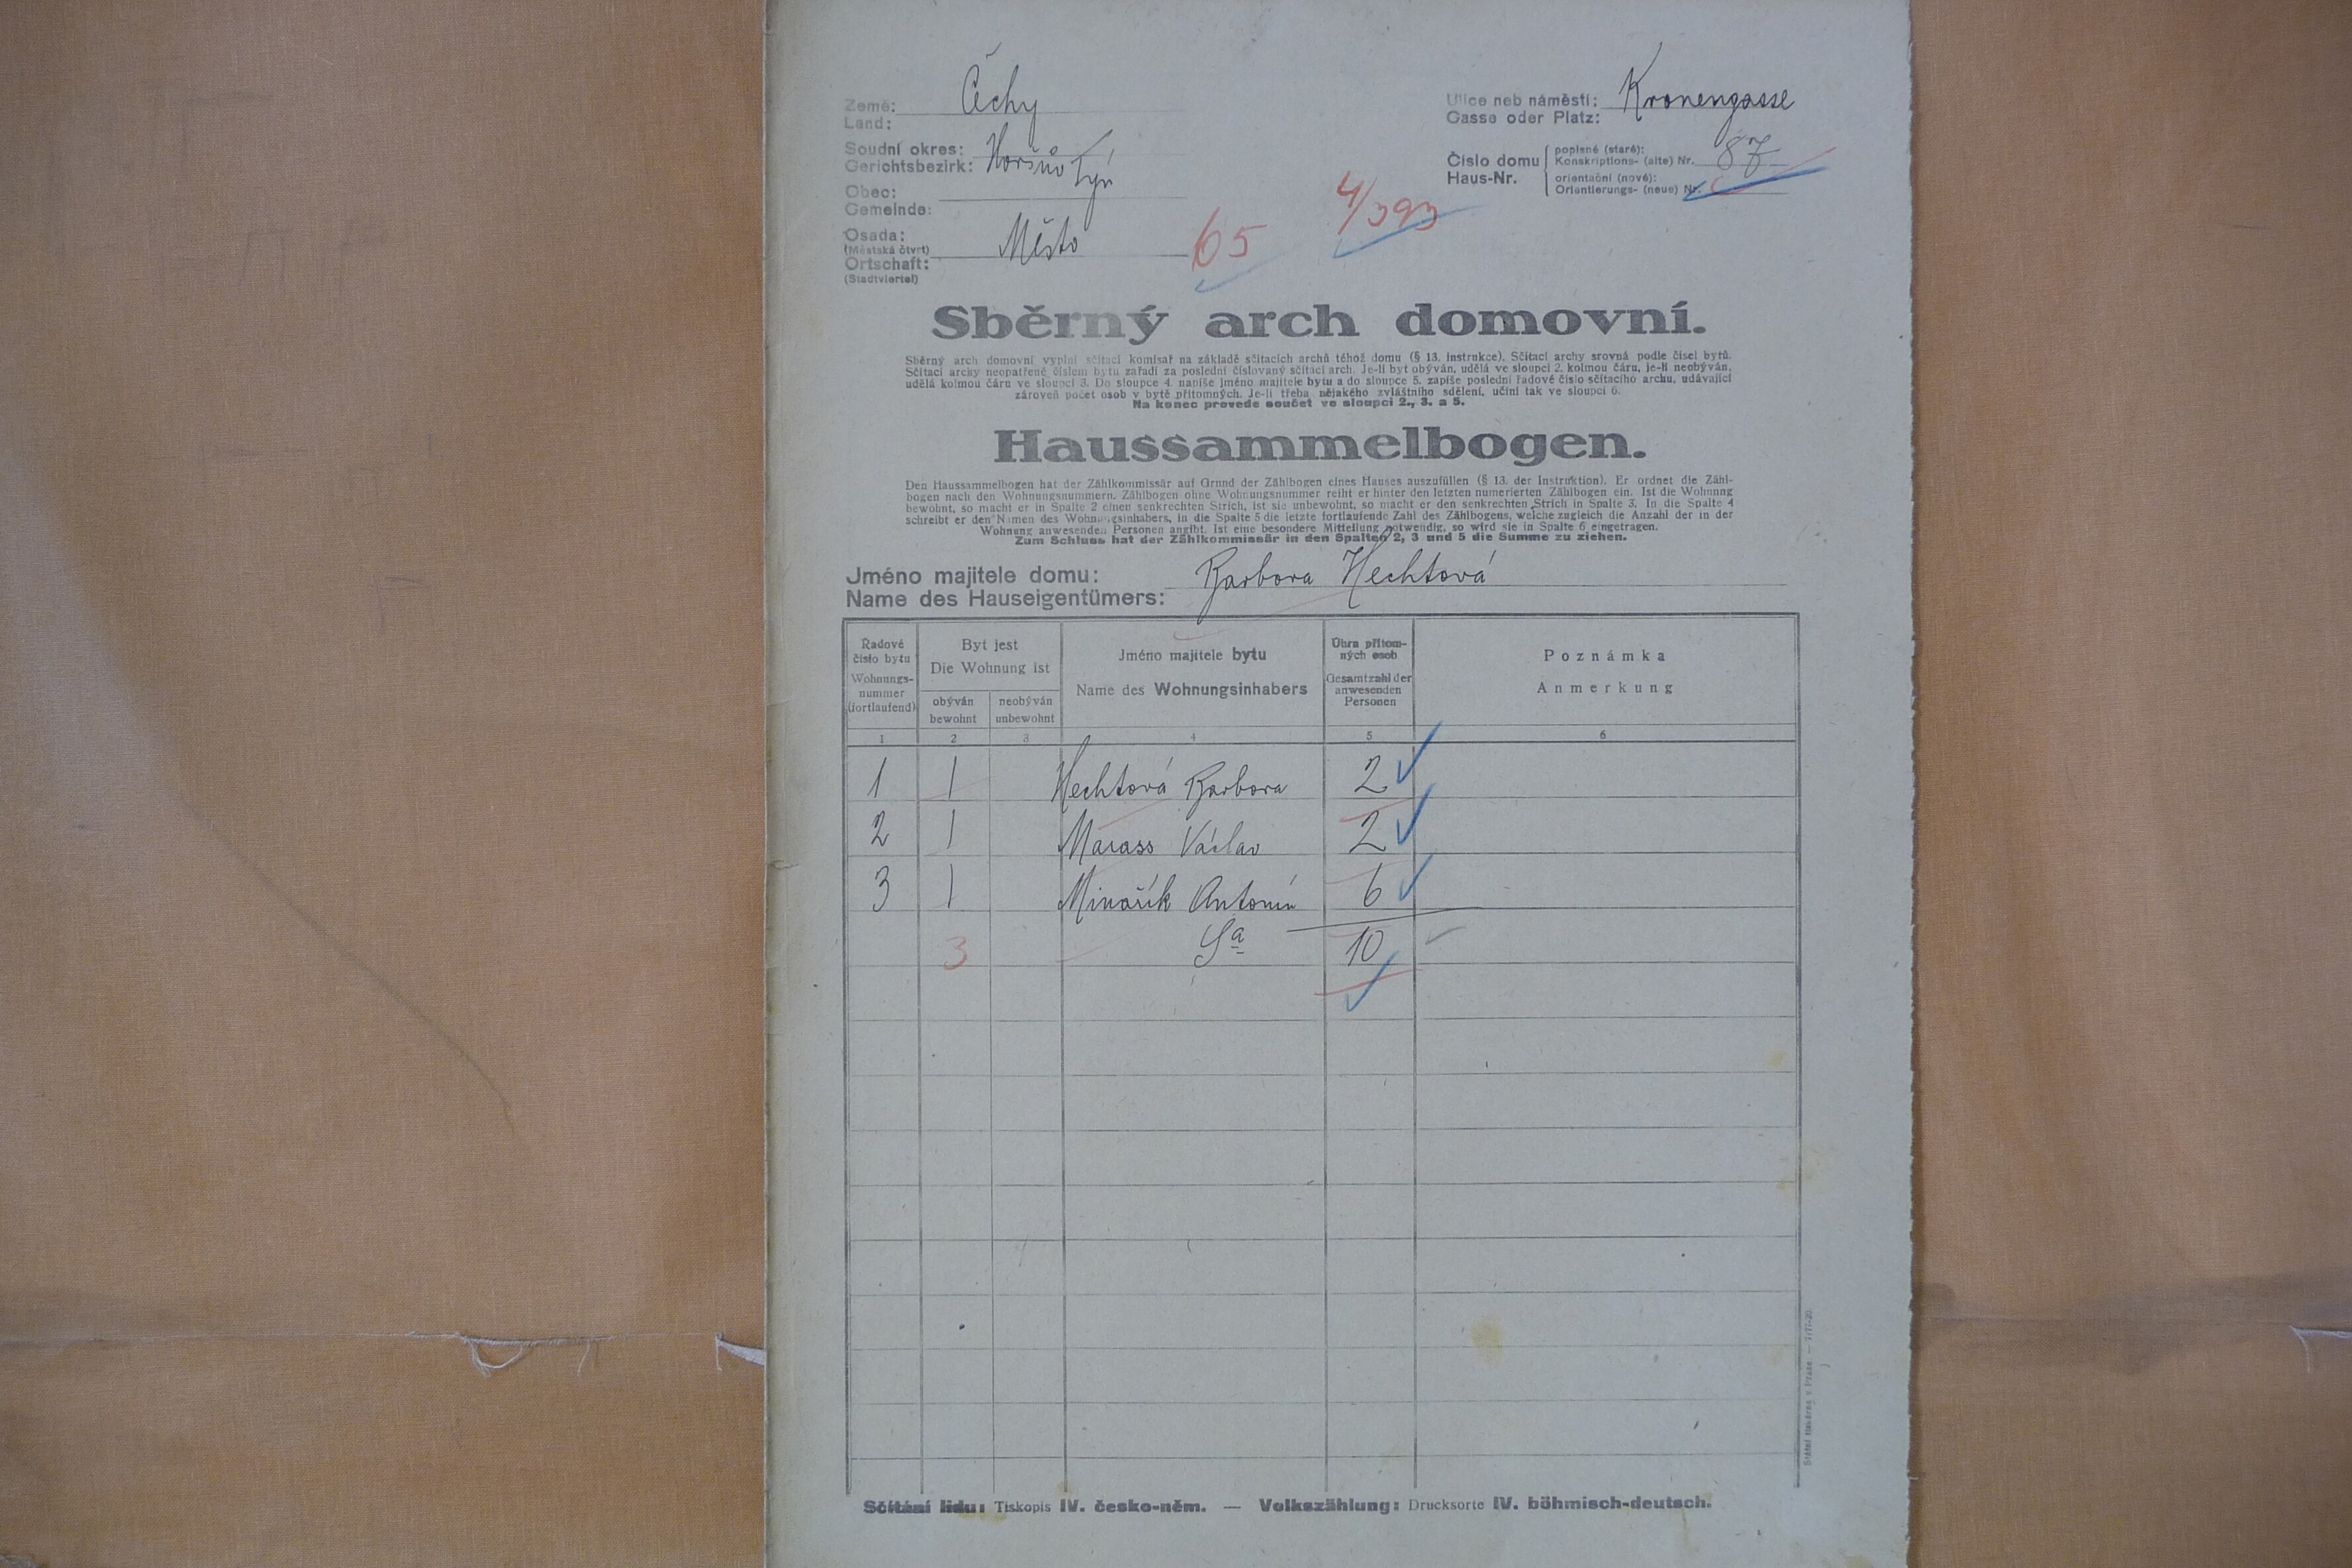 Země: Čechy
Land:
Soudní okres: Horšův Týn
Gerichtsbezirk:
Obec:
Gemeinde:
Osada: Město
(Městská čtvrt)
Ortschaft:
(Stadtviertel)
65
4/393
Ulice neb náměstí: Kronengasse
Gasse oder Platz:
Číslo domu
Haus-Nr.
popisné (staré):
Konskriptions- (alte) Nr. 87
orientační (nové):
Orientierungs- (neue) Nr.
Sběrný arch domovní.
Sběrný arch domovní vyplní sčítací komisař na základě sčítacích archů téhož domu (§ 13. instrukce). Sčítací archy srovná podle čísel bytů.
Sčítací archy neopatřené číslem bytu zařadí za poslední číslovaný sčítací arch. Je-li byt obýván, udělá ve sloupci 2. kolmou čáru, je-li neobýván,
udělá kolmou čáru ve sloupci 3. Do sloupce 4. napíše jméno majitele bytu a do sloupce 5. zapíše poslední řadové číslo sčítacího archu, udávající
zároveň počet osob v bytě přítomných. Je-li třeba nějakého zvláštního sdělení, učiní tak ve sloupci 6.
Na konec provede součet ve sloupci 2., 3. a 5.
Haussammelbogen.
Den Haussammelbogen hat der Zählkommissär auf Grund der Zählbogen eines Hauses auszufüllen (§ 13. der Instruktion). Er ordnet die Zähl-
bogen nach den Wohnungsnummern. Zählbogen ohne Wohnungsnummer reiht er hinter den letzten numerierten Zählbogen ein. Ist die Wohnung
bewohnt, so macht er in Spalte 2 einen senkrechten Strich, ist sie unbewohnt, so macht er den senkrechten Strich in Spalte 3. In die Spalte 4
schreibt er den Namen des Wohnungsinhabers, in die Spalte 5 die letzte fortlaufende Zahl des Zählbogens, welche zugleich die Anzahl der in der
Wohnung anwesenden Personen angibt. Ist eine besondere Mitteilung notwendig, so wird sie in Spalte 6 eingetragen.
Zum Schluss hat der Zählkommissär in den Spalten 2, 3 und 5 die Summe zu ziehen.
Jméno majitele domu: Barbora Hechtová
Name des Hauseigentümers:
Řadové
číslo bytu
Wohnungs-
nummer
(fortlaufend)
Byt jest
Die Wohnung ist
obýván
bewohnt
neobýván
unbewohnt
Jméno majitele bytu
Name des Wohnungsinhabers
Úhrn přítom-
ných osob
Gesamtzahl der
anwesenden
Personen
Poznámka
Anmerkung
1 2 3 4 5 6
1 1 Hechtová Barbora 2
2 1 Marass Václav 2
3 1 Minařík Antonín 6
3 Sa 10
Sčítání lidu: Tiskopis IV. česko-něm. — Volkszählung: Drucksorte IV. böhmisch-deutsch.